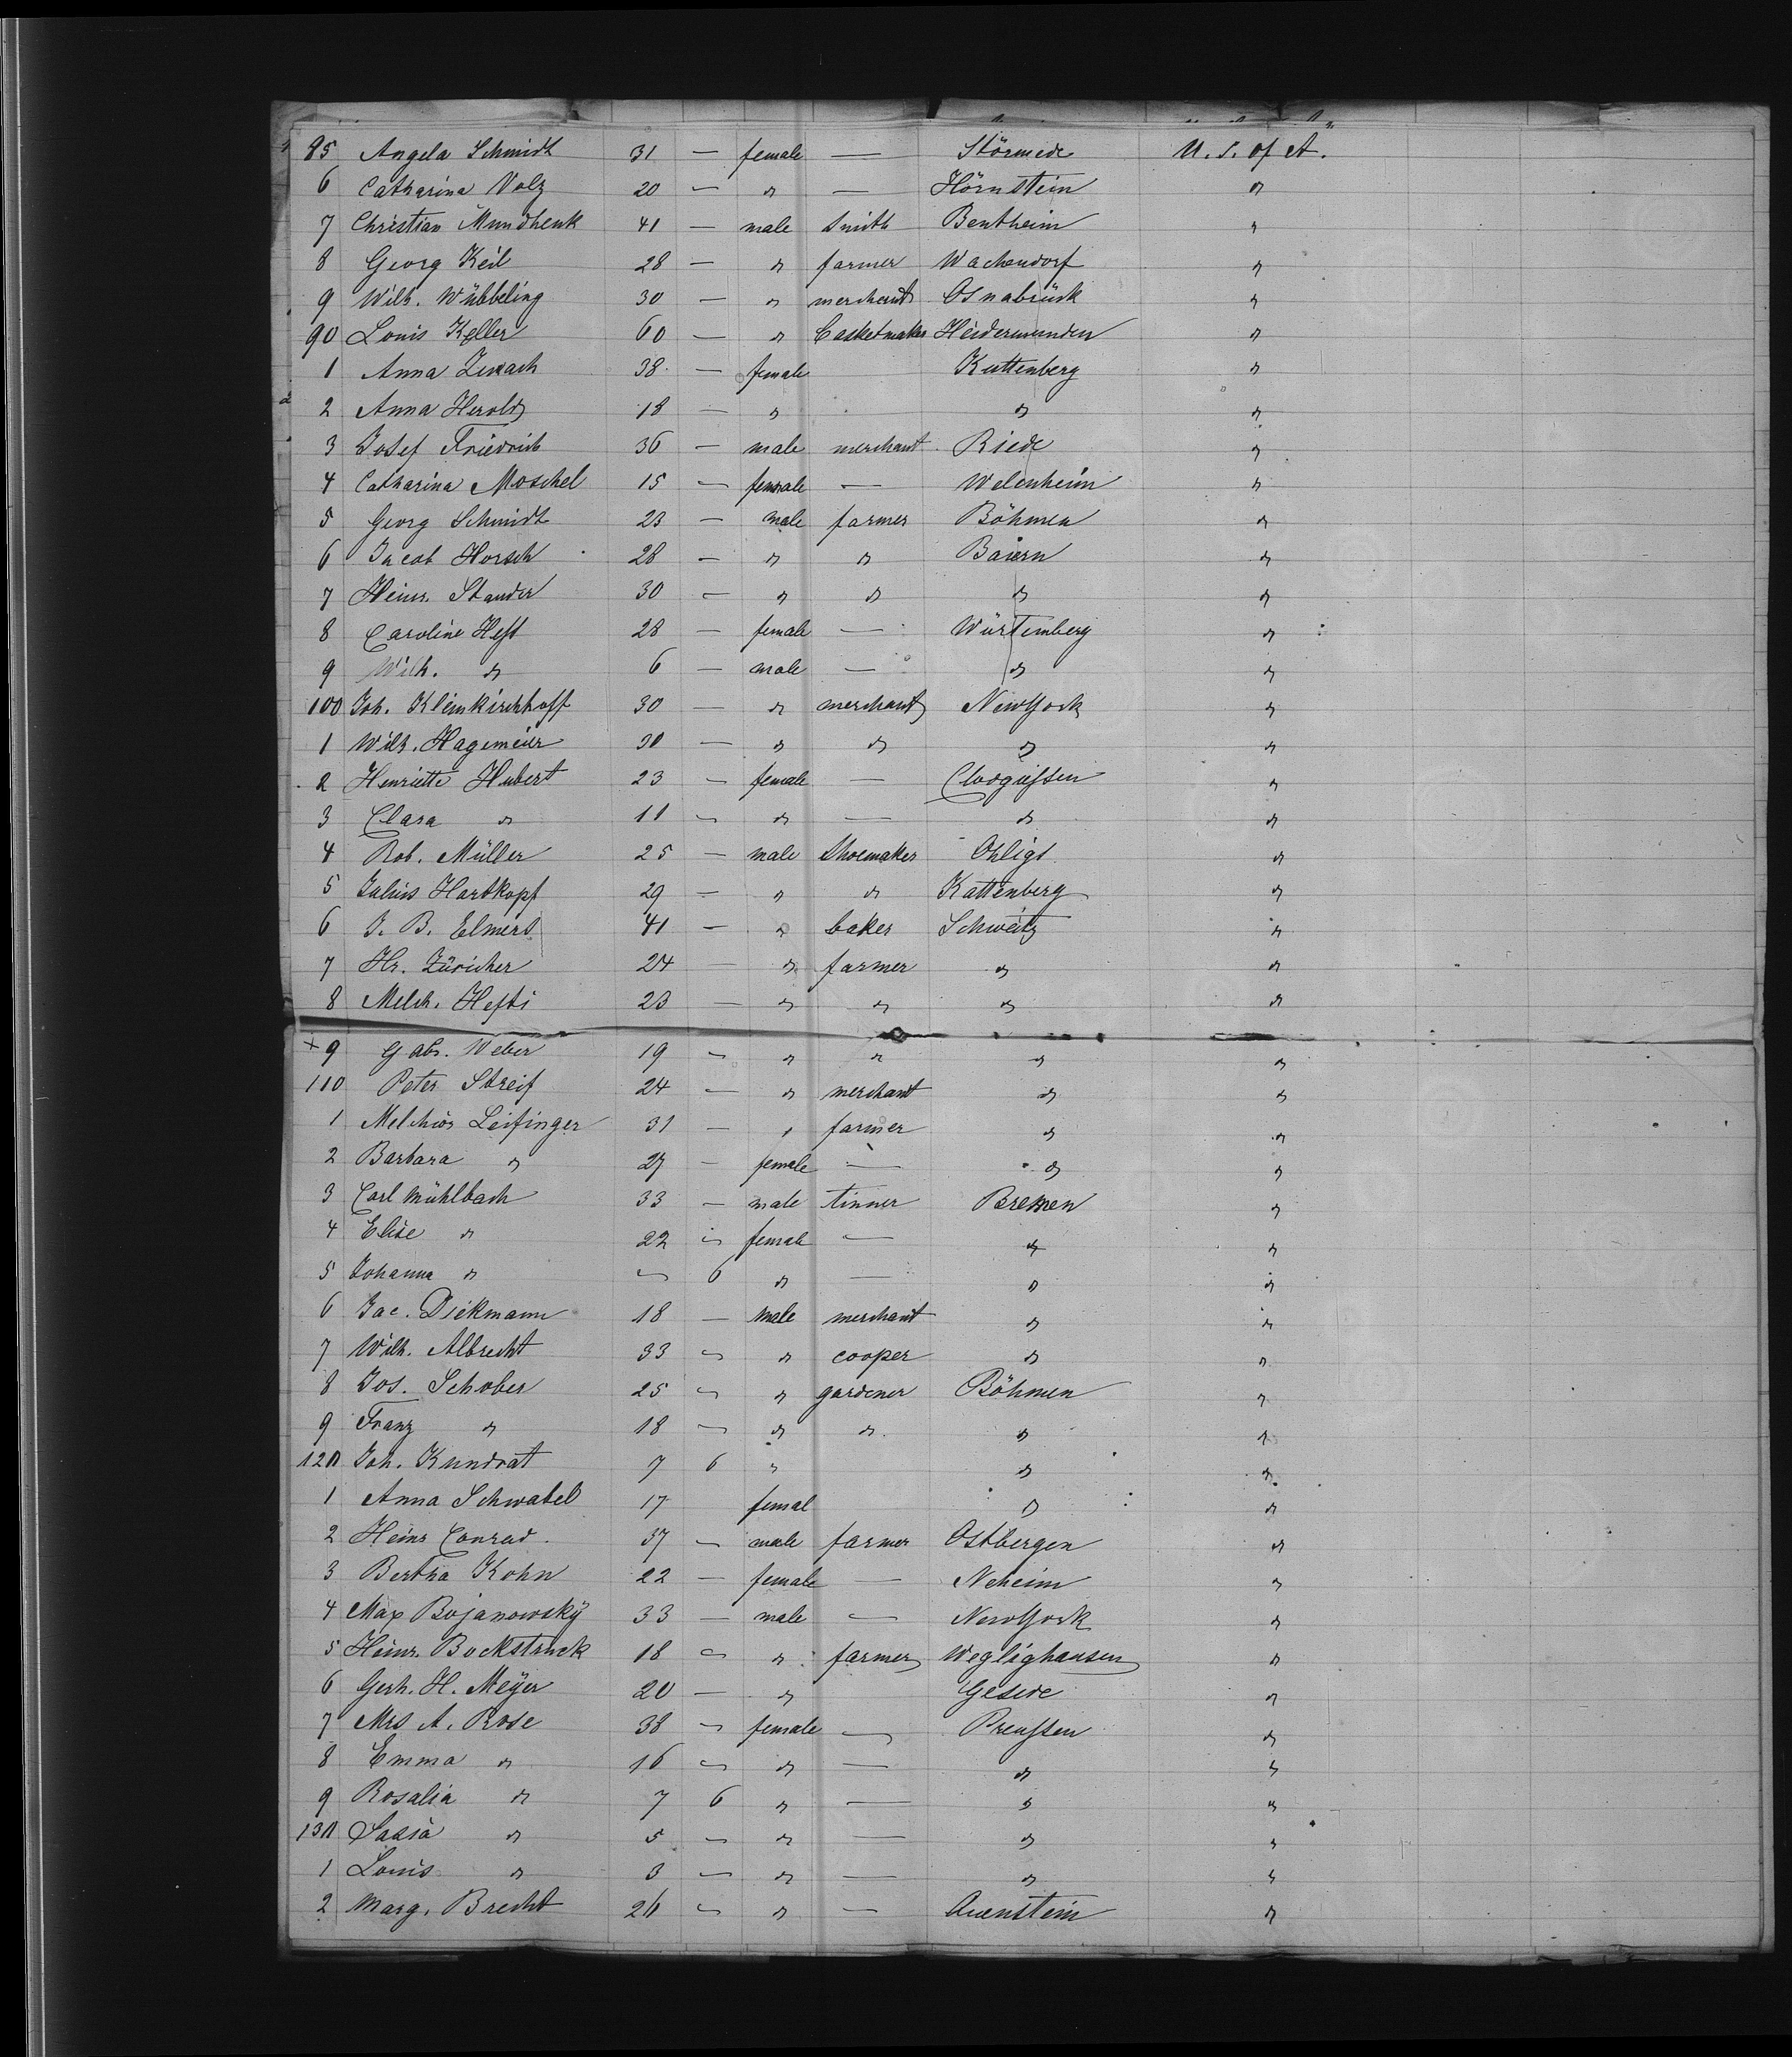 85 Angela Schmidt 31 — female — Störmede U. S. of A.
6 Catharina Volz 20 — " — Hörnstein "
7 Christian Mundhenk 41 — male Smith Bentheim "
8 Georg Keil 28 — " farmer Wachendorf "
9 Wilh. Wübbeling 30 — " merchant Osnabrück "
90 Louis Keller 60 — " Basketmaker "
1 Anna 38 — female Kuttenberg "
2 Anna Herold 18 — " " "
3 Josef Friedrich 36 — male merchant Riede "
4 Catharina Moschel 15 — female — Welenheim "
5 Georg Schmidt 23 — male farmer Böhmen "
6 Jacob Horsch 28 — " " Baiern "
7 Heinr. Stander 30 — " " " "
8 Caroline Heft 28 — female — Würtemberg "
9 Wilh. " 6 — male — " "
100 Joh. Kleinkirchhoff 30 — " merchant NewYork "
1 Wilh. Hagemeier 30 — " " " "
2 Henriette Hubert 23 — female — "
3 Clara " 11 — " — " "
4 Rob. Müller 25 — male Shoemaker Ohligs "
5 Julius Hartkopf 29 — " " Kattenberg "
6 J. B. Elmers 41 — " baker Schweitz "
7 Hr. Züricher 24 — " farmer " "
8 Melch. Hefti 23 — " " " "
+ 9 Gabr. Weber 19 — " " " "
110 Peter Streif 24 — " merchant " "
1 Melchior Leifinger 31 — " farmer " "
2 Barbara " 27 — female — " "
3 Carl Mühlbach 33 — male tinner Bremen "
4 Elise " 22 — female — " "
5 Johanna " — 6 " — " "
6 Jac. Diekmann 18 — male merchant " "
7 Wilh. Albrecht 33 — " cooper " "
8 Jos. Schober 25 — " gardener Böhmen "
9 Franz " 18 — " " " "
120 Joh. Kundrat 7 6 " " "
1 Anna Schwabel 17 femal " "
2 Heinr Conrad 37 — male farmer Ostbergen "
3 Bertha Kohn 22 — female — Neheim "
4 Max Bojanowsky 33 — male — NewYork "
5 Heinr. Bockstruck 18 — " farmer Weglighausen "
6 Gerh. H. Meÿer 20 — " Geseke "
7 Mrs A. Rose 38 — female — Preußen "
8 Emma " 16 — " — " "
9 Rosalia " 7 6 " — " "
130 " 5 — " — " "
1 Louis " 3 — " — " "
2 Marg. Brecht 26 — " — Auenstein "